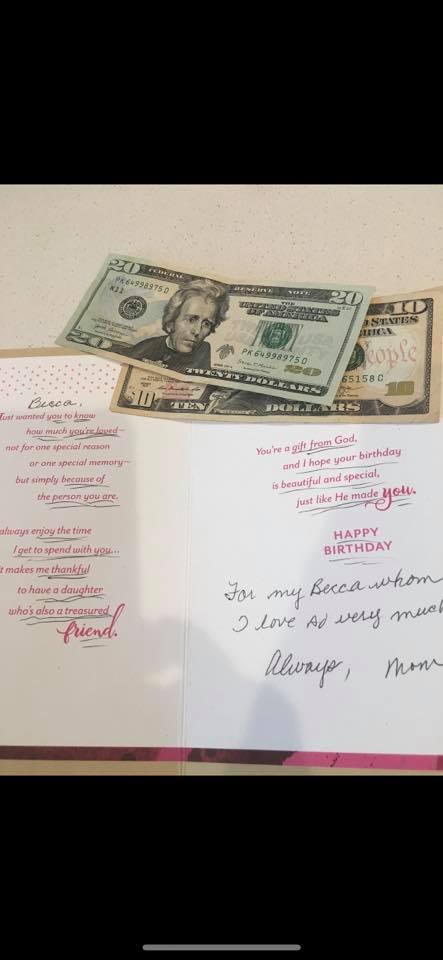 20 FEDERAL RESERVE NOTE 20
PK 64998975 D
K11
THE
UNITED STATES
OF AMERICA
PK 64998975 D
20
20
TWENTY DOLLARS
10
D STATES
eople
65158 C
10
$10 TEN DOLLARS
Becca,
Just wanted you to know
how much you're loved–
not for one special reason
or one special memory–
but simply because of
the person you are.
always enjoy the time
I get to spend with you...
t makes me thankful
to have a daughter
who's also a treasured
friend.
You're a gift from God,
and I hope your birthday
is beautiful and special,
just like He made you.
HAPPY
BIRTHDAY
For my Becca whom
I love so very much
Always, Mom